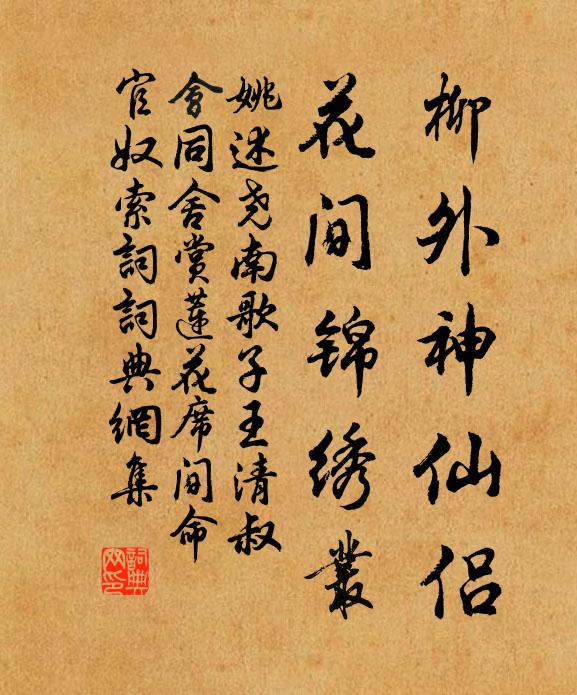 柳外神仙侣
花间锦绣丛
姚述尧南歌子王清叔
會同舍赏莲花席间命
官奴索詞詞典網集
詞典网印